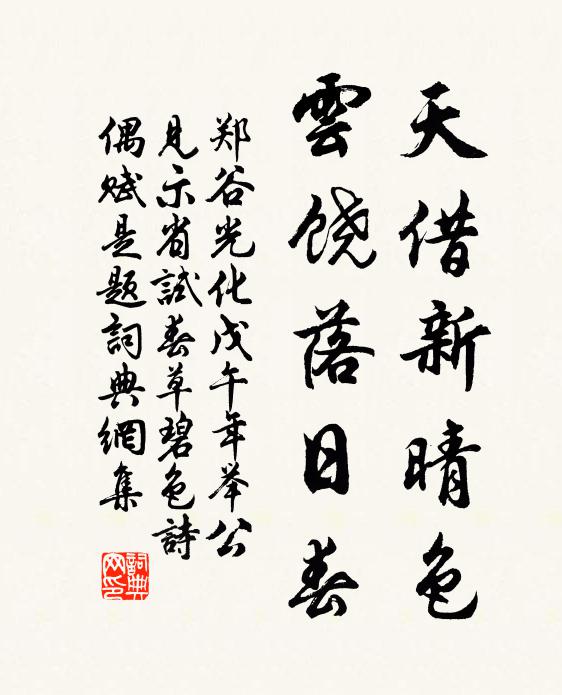 天借新晴色
雲饶落日春
郑谷光化戊午年举公
見示省試春草碧色詩
偶赋是题詞典網集
詞典
网印